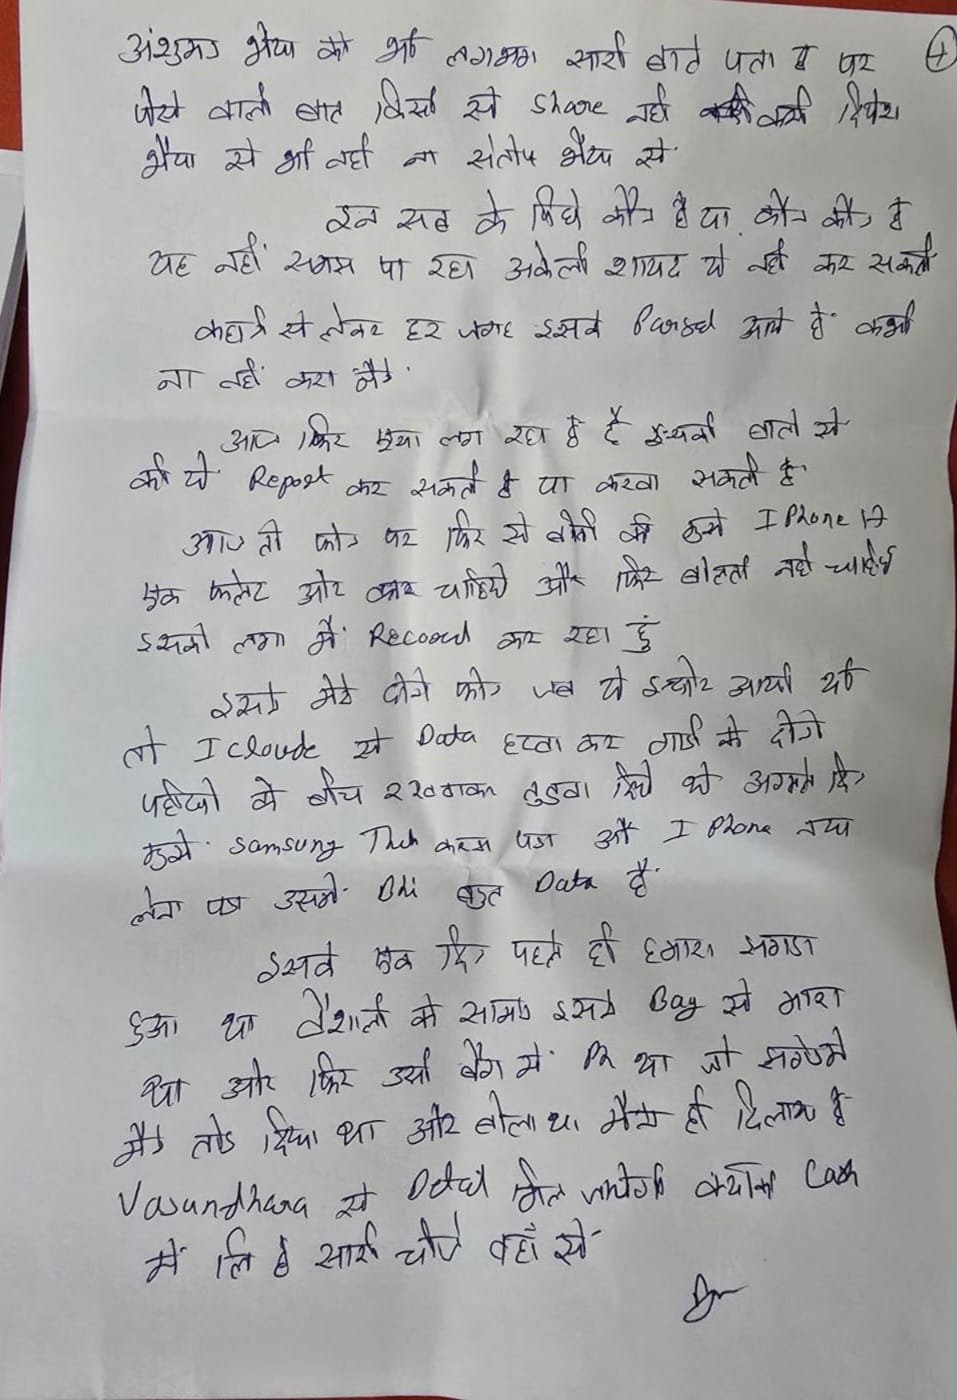 अंशुमन भैया को भी लगभग सारी बाते पता है पर
पैसे वाली बात किसी से share नहीं करी दिपेश
भैया से भी नहीं ना संतोष भैया से
इन सब के पिछे कौन है या कौन कौन है
यह नहीं समझ पा रहा अकेली शायद ये नहीं कर सकती
से लेकर हर जगह इसके Parsal आते हैं कभी
ना नहीं करा मैने
आज फिर एसा लग रहा है इसकी बातो से
की ये Report कर सकती है या करवा सकती है
आज तो फोन पर फिर से बोली की मुझे I Phone 17
एक फ्लेट और कार चाहिये और फिर बोलती नहीं चाहिए
इसको लगा मैं Record कर रहा हुं
इसने मेरे दोनो फोन जब ये इन्दौर आयी थी
तो I Cloude से Data हटवा कर गाडी के दोनो
पहीयो के बीच रखवाकर तुडवा दिये थे अगले दिन
मुझे Samsung करना पडा और I Phone नया
लेना पडा उसमें Bhi बहुत Data है
इसके एक दिन पहले ही हमारा झगडा
हुआ था वैशाली के सामने इसने Bag से मारा
था और फिर उसी बैग में था जो
मैने तोड दिया था और बोला था मैने ही दिलाया है
Vasundhara से Detail मिल जायेगी क्योंकी Cash
में लि है सारी चीजे वहाँ से